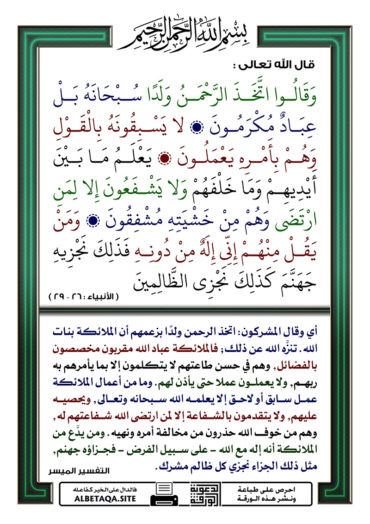 بِسْمِ اللَّهِ الرَّحْمَنِ الرَّحِيمِ
قال الله تعالى :
وَقَالُـوا اتَّخَـذَ الرَّحْمَـٰنُ وَلَدًا سُـبْحَانَهُ بَـلْ
عِبَـادٌ مُكْرَمُـونَ ۞ لَا يَسْـبِقُونَهُ بِالْقَـوْلِ
وَهُـمْ بِأَمْـرِهِ يَعْمَلُـونَ ۞ يَعْلَـمُ مَـا بَـيْنَ
أَيْدِيهِـمْ وَمَا خَلْفَهُمْ وَلَا يَشْـفَعُونَ إِلَّا لِمَنِ
ارْتَضَى وَهُمْ مِنْ خَشْيَتِهِ مُشْفِقُونَ ۞ وَمَنْ
يَقُـلْ مِنْهُـمْ إِنِّي إِلَهٌ مِنْ دُونِـهِ فَذَلِكَ نَجْزِيهِ
جَهَنَّمَ كَذَلِكَ نَجْزِي الظَّالِمِينَ
( الأنبياء : ٢٦ - ٢٩ )
أي وقال المشركون: اتخذ الرحمن ولدًا بزعمهم أن الملائكة بنات
الله. تنزَّه الله عن ذلك; فالملائكة عباد الله مقربون مخصصون
بالفضائل, وهم في حسن طاعتهم لا يتكلمون إلا بما يأمرهم به
ربهـم, ولا يعملـون عملا حتى يأذن لهم. وما من أعمال الملائكة
عمـل سـابق أو لاحـق إلا يعلمـه الله سـبحانه وتعـالى, ويحصيـه
عليهم, ولا يتقدمون بالشـفاعة إلا لمن ارتضى الله شـفاعتهم له,
وهم من خوف الله حذرون من مخالفة أمره ونهيه. ومن يدَّعِ من
الملائكة أنه إله مع الله - على سبيل الفرض - فجـزاؤه جهنم,
مثل ذلك الجزاء نجزي كل ظالم مشرك.
التفسير الميسر
احرص على طباعة
ونشـر هـذه الورقـة
الدعوية
الورقة
فالدال على الخير كفاعله
ALBETAQA.SITE